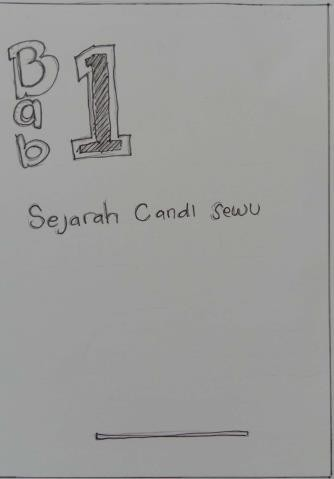 Bab 1
Sejarah Candi Sewu